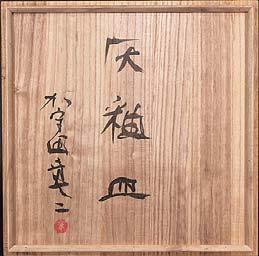 灰釉皿
加守田章二